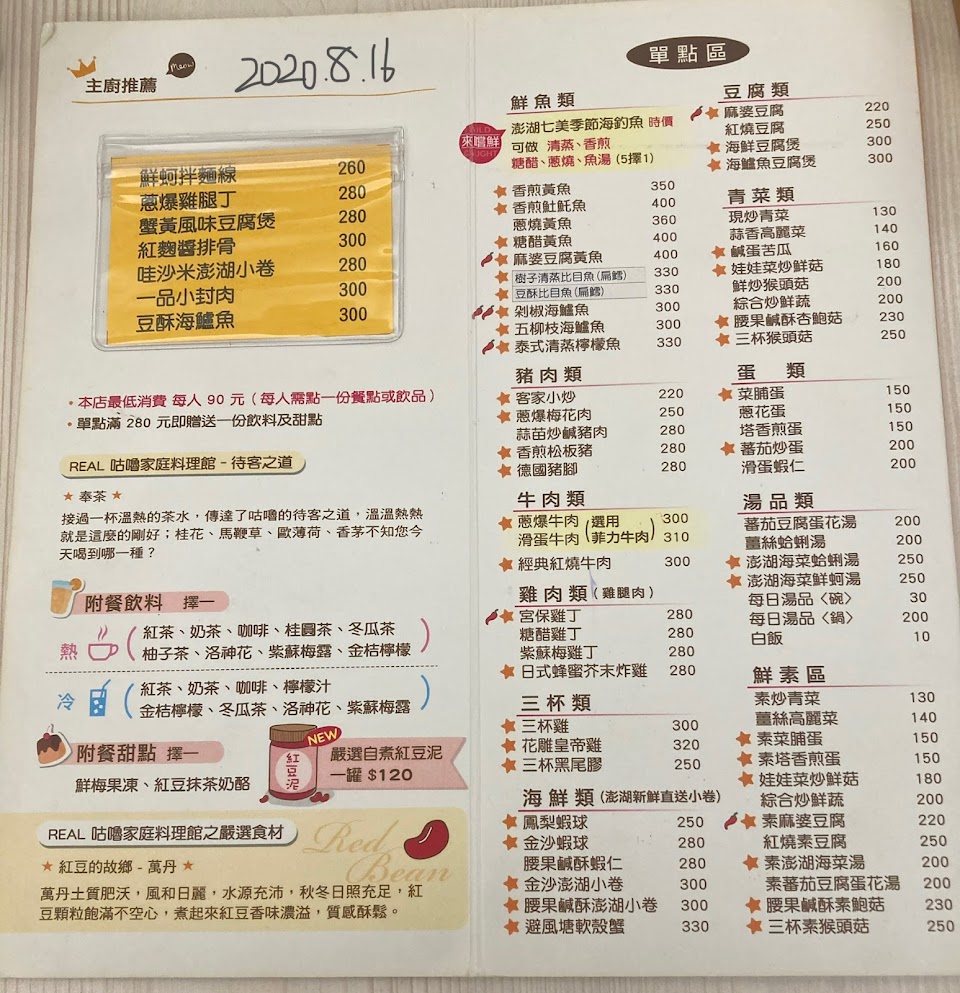 主廚推薦
Meow!
2020.8.16
鮮蚵拌麵線 260
蔥爆雞腿丁 280
蟹黃風味豆腐煲 280
紅麴醬排骨 300
哇沙米澎湖小卷 280
一品小封肉 300
豆酥海鱸魚 300
・本店最低消費 每人 90 元（每人需點一份餐點或飲品）
・單點滿 280 元即贈送一份飲料及甜點
REAL 咕嚕家庭料理館 - 待客之道
★ 奉茶 ★
接過一杯溫熱的茶水，傳達了咕嚕的待客之道，溫溫熱熱
就是這麼的剛好；桂花、馬鞭草、歐薄荷、香茅不知您今
天喝到哪一種？
附餐飲料 擇一
熱
紅茶、奶茶、咖啡、桂圓茶、冬瓜茶
柚子茶、洛神花、紫蘇梅露、金桔檸檬
冷
紅茶、奶茶、咖啡、檸檬汁
金桔檸檬、冬瓜茶、洛神花、紫蘇梅露
附餐甜點 擇一
鮮梅果凍、紅豆抹茶奶酪
NEW
紅豆泥
嚴選自煮紅豆泥
一罐 $120
REAL 咕嚕家庭料理館之嚴選食材
Red Bean
★ 紅豆的故鄉 - 萬丹 ★
萬丹土質肥沃，風和日麗，水源充沛，秋冬日照充足，紅
豆顆粒飽滿不空心，煮起來紅豆香味濃溢，質感酥鬆。
單點區
鮮魚類
來嚐鮮
澎湖七美季節海釣魚 時價
可做 清蒸、香煎
糖醋、蔥燒、魚湯（5擇1）
★香煎黃魚 350
★香煎魠魠魚 400
蔥燒黃魚 360
★糖醋黃魚 400
★麻婆豆腐黃魚 400
★樹子清蒸比目魚（扁鱈） 330
★豆酥比目魚（扁鱈） 330
★剁椒海鱸魚 300
★五柳枝海鱸魚 330
★泰式清蒸檸檬魚 330
豬肉類
★客家小炒 220
★蔥爆梅花肉 250
蒜苗炒鹹豬肉 280
★香煎松板豬 280
★德國豬腳 280
牛肉類
★蔥爆牛肉（選用 300
滑蛋牛肉 菲力牛肉）310
★經典紅燒牛肉 300
雞肉類（雞腿肉）
★宮保雞丁 280
糖醋雞丁 280
紫蘇梅雞丁 280
★日式蜂蜜芥末炸雞 280
三杯類
★三杯雞 300
★花雕皇帝雞 320
★三杯黑尾膠 250
海鮮類（澎湖新鮮直送小卷）
★鳳梨蝦球 250
★金沙蝦球 280
腰果鹹酥蝦仁 280
★金沙澎湖小卷 300
★腰果鹹酥澎湖小卷 300
★避風塘軟殼蟹 330
豆腐類
★麻婆豆腐 220
紅燒豆腐 250
★海鮮豆腐煲 300
★海鱸魚豆腐煲 300
青菜類
現炒青菜 130
蒜香高麗菜 140
★鹹蛋苦瓜 160
★娃娃菜炒鮮菇 180
鮮炒猴頭菇 200
綜合炒鮮蔬 200
★腰果鹹酥杏鮑菇 230
★三杯猴頭菇 250
蛋 類
★菜脯蛋 150
蔥花蛋 150
塔香煎蛋 150
★蕃茄炒蛋 200
滑蛋蝦仁 200
湯品類
蕃茄豆腐蛋花湯 200
薑絲蛤蜊湯 200
★澎湖海菜蛤蜊湯 250
★澎湖海菜鮮蚵湯 250
每日湯品〈碗〉 30
每日湯品〈鍋〉 200
白飯 10
鮮素區
素炒青菜 130
薑絲高麗菜 140
★素菜脯蛋 150
★素塔香煎蛋 150
★娃娃菜炒鮮菇 180
綜合炒鮮蔬 200
★素麻婆豆腐 220
紅燒素豆腐 250
★素澎湖海菜湯 200
素蕃茄豆腐蛋花湯 200
★腰果鹹酥素鮑菇 230
★三杯素猴頭菇 250